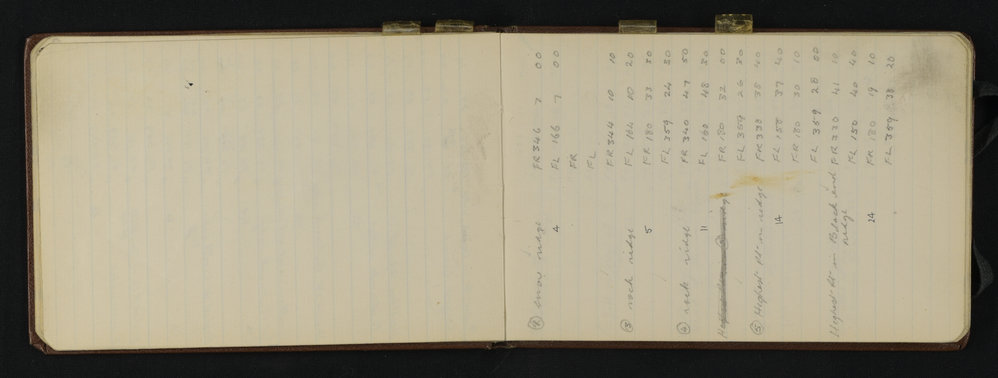 ② Snow ridge FR 346 7 00
4 FL 166 7 00
FR
FL
FR 344 10 10
③ rock ridge FL 164 10 20
5 FR 180 33 30
FL 359 24 30
④ rock ridge FR 340 47 50
11 FL 160 48 30
FR 180 32 00
FL 359 26 30
⑤ Highest pt in ridge FR 338 38 40
14 FL 158 37 40
FR 180 30 10
FL 359 28 00
Highest pt in Black end FR 330 41 10
ridge FL 150 40 40
24 FR 180 19 10
FL 359 38 20